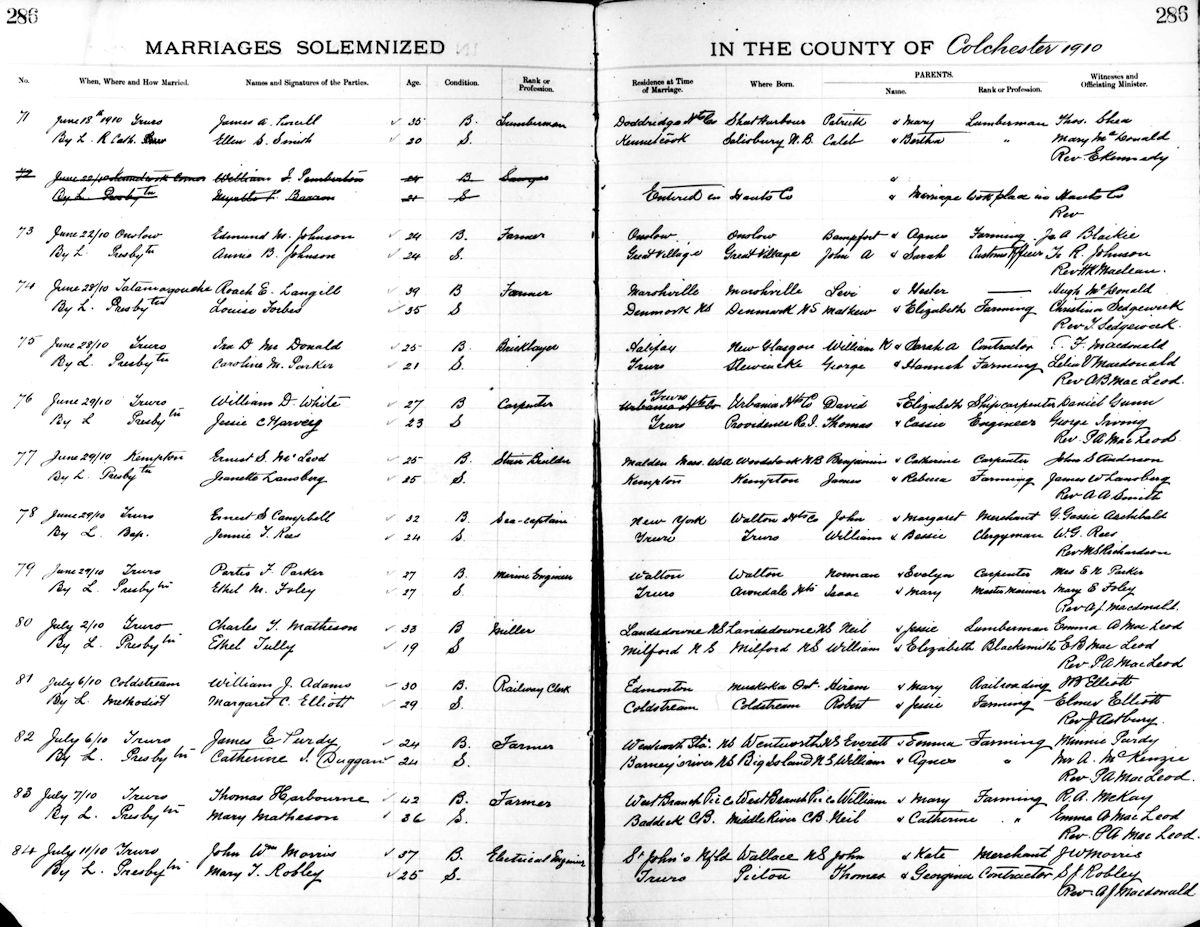 286 286
MARRIAGES SOLEMNIZED IN THE COUNTY OF Colchester 1910
No. When, Where and How Married. Names and Signatures of the Parties. Age. Condition. Rank or Profession. Residence at Time of Marriage. Where Born. PARENTS. Name. Rank or Profession. Witnesses and Officiating Minister.
71 June 18th 1910 Truro James A. Powell 35 B. Lumberman Doddridge Hts Co Shat Harbour Patrick & Mary Lumberman Thos. Shea
By L. R Cath. Ellen S. Smith 20 S. Kennetcook Salisbury N.B. Caleb & Bertha " Mary McDonald
Rev E Kennedy
72 June 22/10 William J. Pemberton 24 B Sawyer "
By L. Presbytn Myrtle F. Barron 21 S Entered in Hants Co & Marriage took place in Hants Co
Rev
73 June 22/10 Onslow Edmund M. Johnson 24 B. Farmer Onslow Onslow & Agnes Farming Ja A Blackie
By L. Presbytn Annie B. Johnson 24 S. Great Village Great Village John A & Sarah Customs Officer R. Johnson
Rev HK Maclean.
74 June 28/10 Tatamagouche Roach E. Langill 39 B Farmer Marshville Marshville Levi & Hester — Hugh McDonald
By L. Presbyted Louise Forbes 35 S Denmark NS Denmark NS Mathew & Elizabeth Farming Christina Sedgewick
Rev T. Sedgewick.
75 June 28/10 Truro Ira D McDonald 25 B. Bricklayer Halifax New Glasgow William K & Sarah A Contractor T. F. Macdonald
By L. Presbytn Caroline M. Parker 21 S. Truro Stewiacke George & Hannah Farming Lelia V Macdonald
Rev AB MacLeod.
76 June 29/10 Truro William D. White 27 B Carpenter Truro Urbania Hts Co Urbania Hts Co David & Elizabeth Ship carpenter Daniel Gunn
By L Presbytn Jessie C Harvey 23 S Truro Providence R.I. Thomas & Cassie Engineer George Irving
Rev. PA MacLeod.
77 June 29/10 Kempton Ernest S. McLeod 25 B. Stair Builder Malden Mass. USA Woodstock NB Benjamin & Catherine Carpenter John S Anderson
By L. Presbytn Jeanette Lansberg 25 S. Kempton Kempton James & Rebecca Farming James W Lansberg
Rev A A Smith
78 June 29/10 Truro Ernest S Campbell 32 B. Sea-captain New York Walton Hts Co John & Margaret Merchant G. Gassie Archibald
By L. Bap. Jennie T. Rees 24 S. Truro Truro William & Bessie Clergyman W. G. Rees
Rev MS Richardson
79 June 29/10 Truro Portis F. Parker 27 B. Marine Engineer Walton Walton Norman & Evelyn Carpenter Mrs E N Parker
By L. Presbytn Ethel M. Foley 27 S. Truro Avondale Hts Isaac & Mary Master Mariner Mary E Foley
Rev AJ Macdonald.
80 July 2/10 Truro Charles Y. Matheson 33 B Miller Landsdowne NS Landsdowne NS Neil & Jessie Lumberman Emma A MacLeod
By L. Presbytn Ethel Tully 19 S Milford N S Milford NS William & Elizabeth Blacksmith EB MacLeod
Rev. PA MacLeod
81 July 6/10 Coldstream William J. Adams 30 B. Railway Clerk Edmonton Muskoka Ont Hiram & Mary Railroading WD Elliott
By L. Methodist Margaret C. Elliott 29 S. Coldstream Coldstream Robert & Jessie Farming Elmer Elliott
Rev J Astbury.
82 July 6/10 Truro James E Purdy 24 B. Farmer Wentworth Sta. NS Wentworth NS Everett & Emma Farming Minnie Purdy
By L. Presbytn Catherine J. Duggan 24 S. Barney's river NS Big Island NS William & Agnes " Mr A. McKenzie
Rev. PA MacLeod.
83 July 7/10 Truro Thomas Harbourne 42 B. Farmer West Branch Pic Co West Branch Pic Co William & Mary Farming R. A. McKay
By L. Presbytn Mary Matheson 36 S. Baddeck C.B. Middle River CB Neil & Catherine " Emma A MacLeod
Rev. PA MacLeod.
84 July 11/10 Truro John Wm Morris 37 B. Electrical Engineer St John's Nfld Wallace NS John & Kate Merchant JW Morris
By L. Presbytn Mary T. Robley 25 S. Truro Pictou Thomas & Georgina Contractor S J Robley
Rev AJ Macdonald